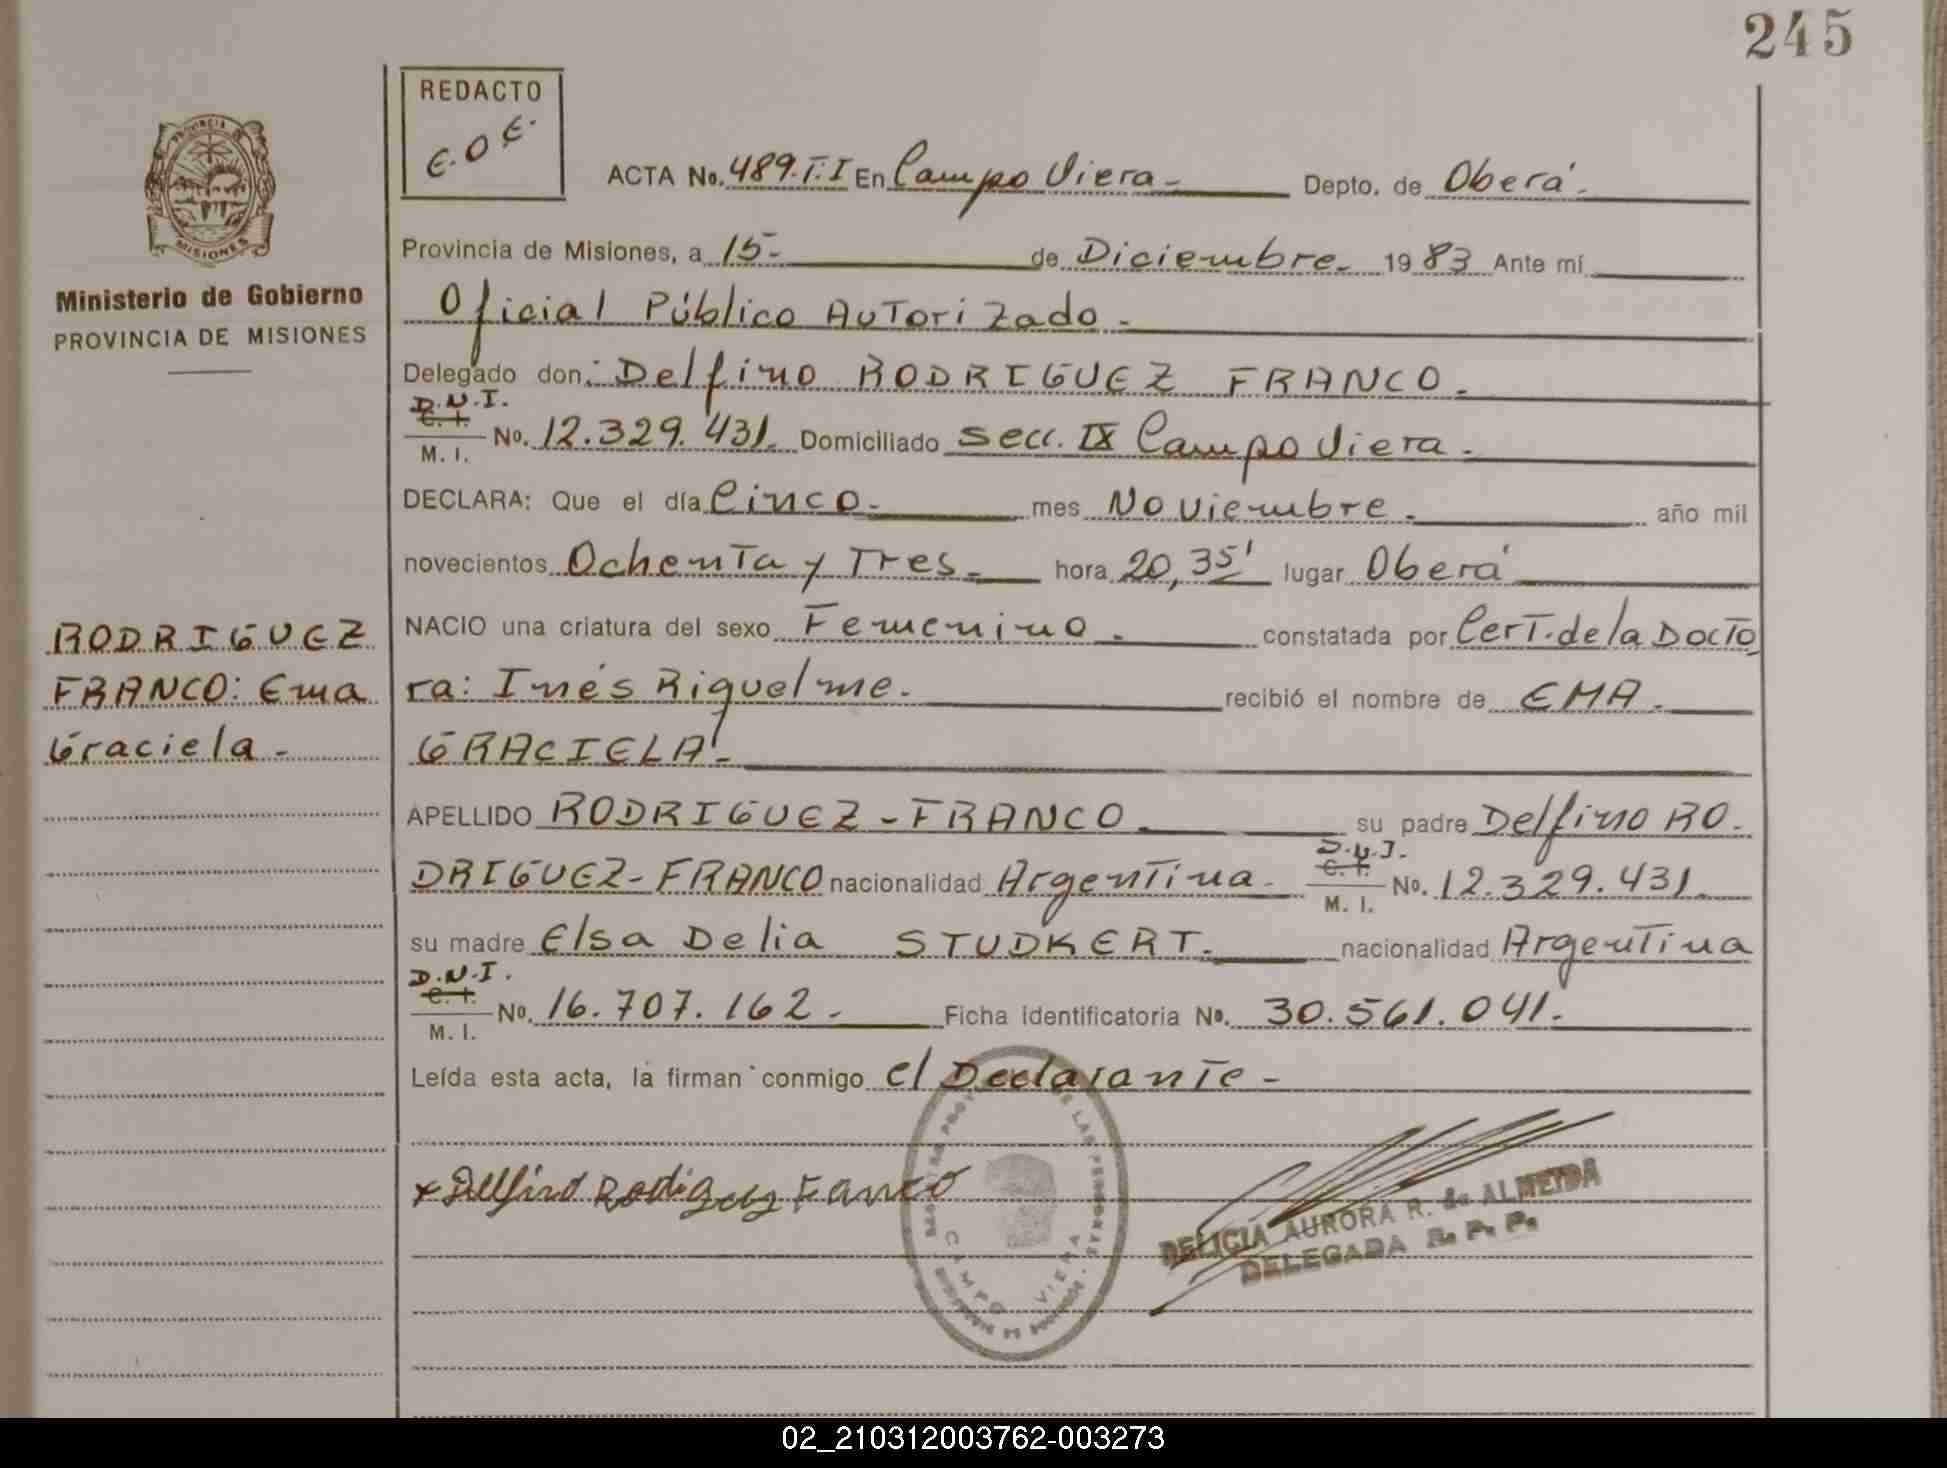 245
REDACTO
E.O.E.
PROVINCIA DE
MISIONES
Ministerio de Gobierno
PROVINCIA DE MISIONES
ACTA No. 489.T:I En Campo Viera - Depto. de Oberá.
Provincia de Misiones, a 15- de Diciembre. 19 83 Ante mí
Oficial Público AuTorizado -
Delegado don: Delfino RODRIGUEZ FRANCO.
D.N.I.
C. I.
M. I.
No. 12.329.431. Domiciliado secc. IX Campo Viera.
DECLARA: Que el día Cinco. mes Noviembre. año mil
novecientos OchenTa y Tres. hora 20,35' lugar Oberá
NACIO una criatura del sexo Femenino. constatada por CerT. de la DocTo
ra: Inés Riquelme. recibió el nombre de EMA.
GRACIELA.-
RODRIGUEZ
FRANCO: Ema
Graciela -
APELLIDO RODRIGUEZ-FRANCO su padre Delfino RO-
DRIGUEZ-FRANCO nacionalidad ArgenTina.
D.N.I.
C. I.
M. I.
No. 12.329.431.
su madre Elsa Delia STUDKERT. nacionalidad ArgenTina
D.N.I.
C. I.
M. I.
No. 16.707.162. Ficha identificatoria No. 30.561.041.
Leída esta acta, la firman conmigo el DeclaranTe -
x Delfino Rodiguez Franco
DE LAS PERSONAS
CAMPO VIERA
DELICIA AURORA R. de ALMEIDA
DELEGADA R. P. P.
02_210312003762-003273